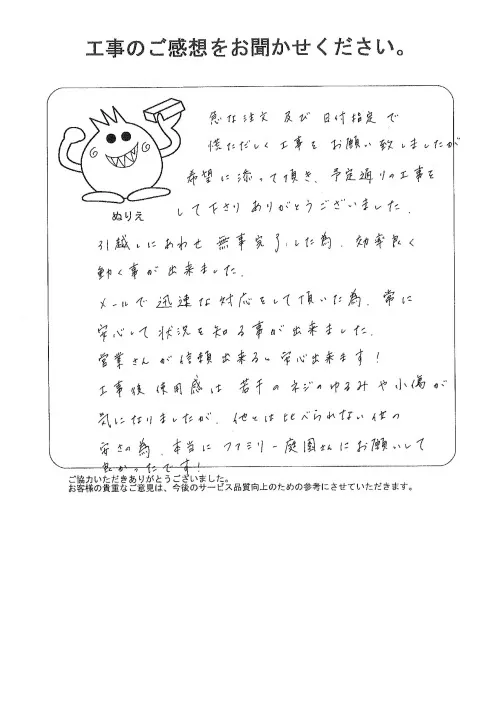 工事のご感想をお聞かせください。
急な注文 及び 日付指定で
慌ただしく工事をお願い致しましたが
希望に添って頂き、予定通りの工事を
して下さりありがとうございました。
ぬりえ
引越しにあわせ 無事完了した為、効率良く
動く事が出来ました。
メールで迅速な対応をして頂いた為、常に
安心して状況を知る事が出来ました。
営業さんが信頼出来るし安心出来ます！
工事後使用感は 若干のネジのゆるみや小傷が
気になりましたが、他とは比べられない位の
安さの為、本当にファミリー庭園さんにお願いして
良かったです！
ご協力いただきありがとうございました。
お客様の貴重なご意見は、今後のサービス品質向上のための参考にさせていただきます。